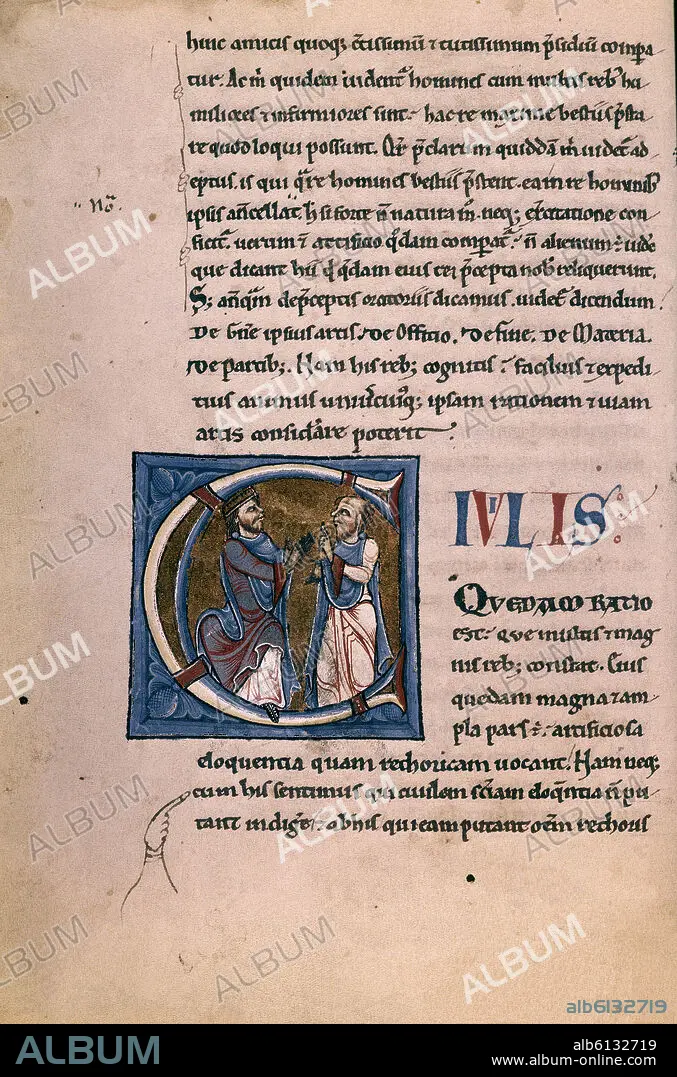 hinc amicis quoq; c̃tissimũ ⁊ tutissimum p̃sidiũ compa
tur. Ac m̃ quidem uident᷑ homines cum multis reb; hu
miliores ⁊ infirmiores sint. hac re maxime bestiis p̃sta
re quod loqui possunt. Qr̃ p̃clarum quiddã m̃ uidet᷑ ad
eptus. is qui q̃ re homines bestiis p̃stent. ea in re hominib;
ipsis antecellat. h̃ si forte ñ natura m̃ neq; exercitatione con
ficit᷑. uerum ⁊ artificio q̃dam comparat᷑. ñ alienum ẽ uide
re que dicant hii q̃ q̃dam eius rei p̃cepta nob̃ reliquerunt.
S; anteq̃m de p̃ceptis oratoriis dicamus. uidet᷑ dicendum
De gñe ipsius artis. de Officio. de fine. De Materia.
de partib;. Nam his reb; cognitis. facilius ⁊ expedi
tius animus uniuscuiusq; ipsam rationem ⁊ uiam
artis considerare poterit.
N̾o.
C
IVLIS
QVEDAM RATIO
est. que multis ⁊ mag
nis reb; constat. Eius
quedam magna ⁊ am
pla pars ẽ. artificiosa
eloquentia quam rethoricam uocant. Nam neq;
cum his sentimus qui ciuilem sciam eloq̃ntia ñ pu
tant indigẽ. ⁊ ab his qui eam putant om̃em rethoris
ALBUM
alb6132719
ALBUM
alb6132719
www.album-online.com